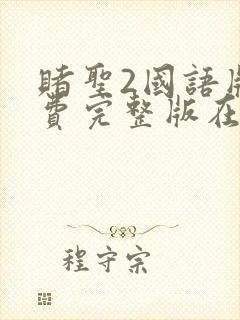 賭聖2國語版
費完整版在
程守宗